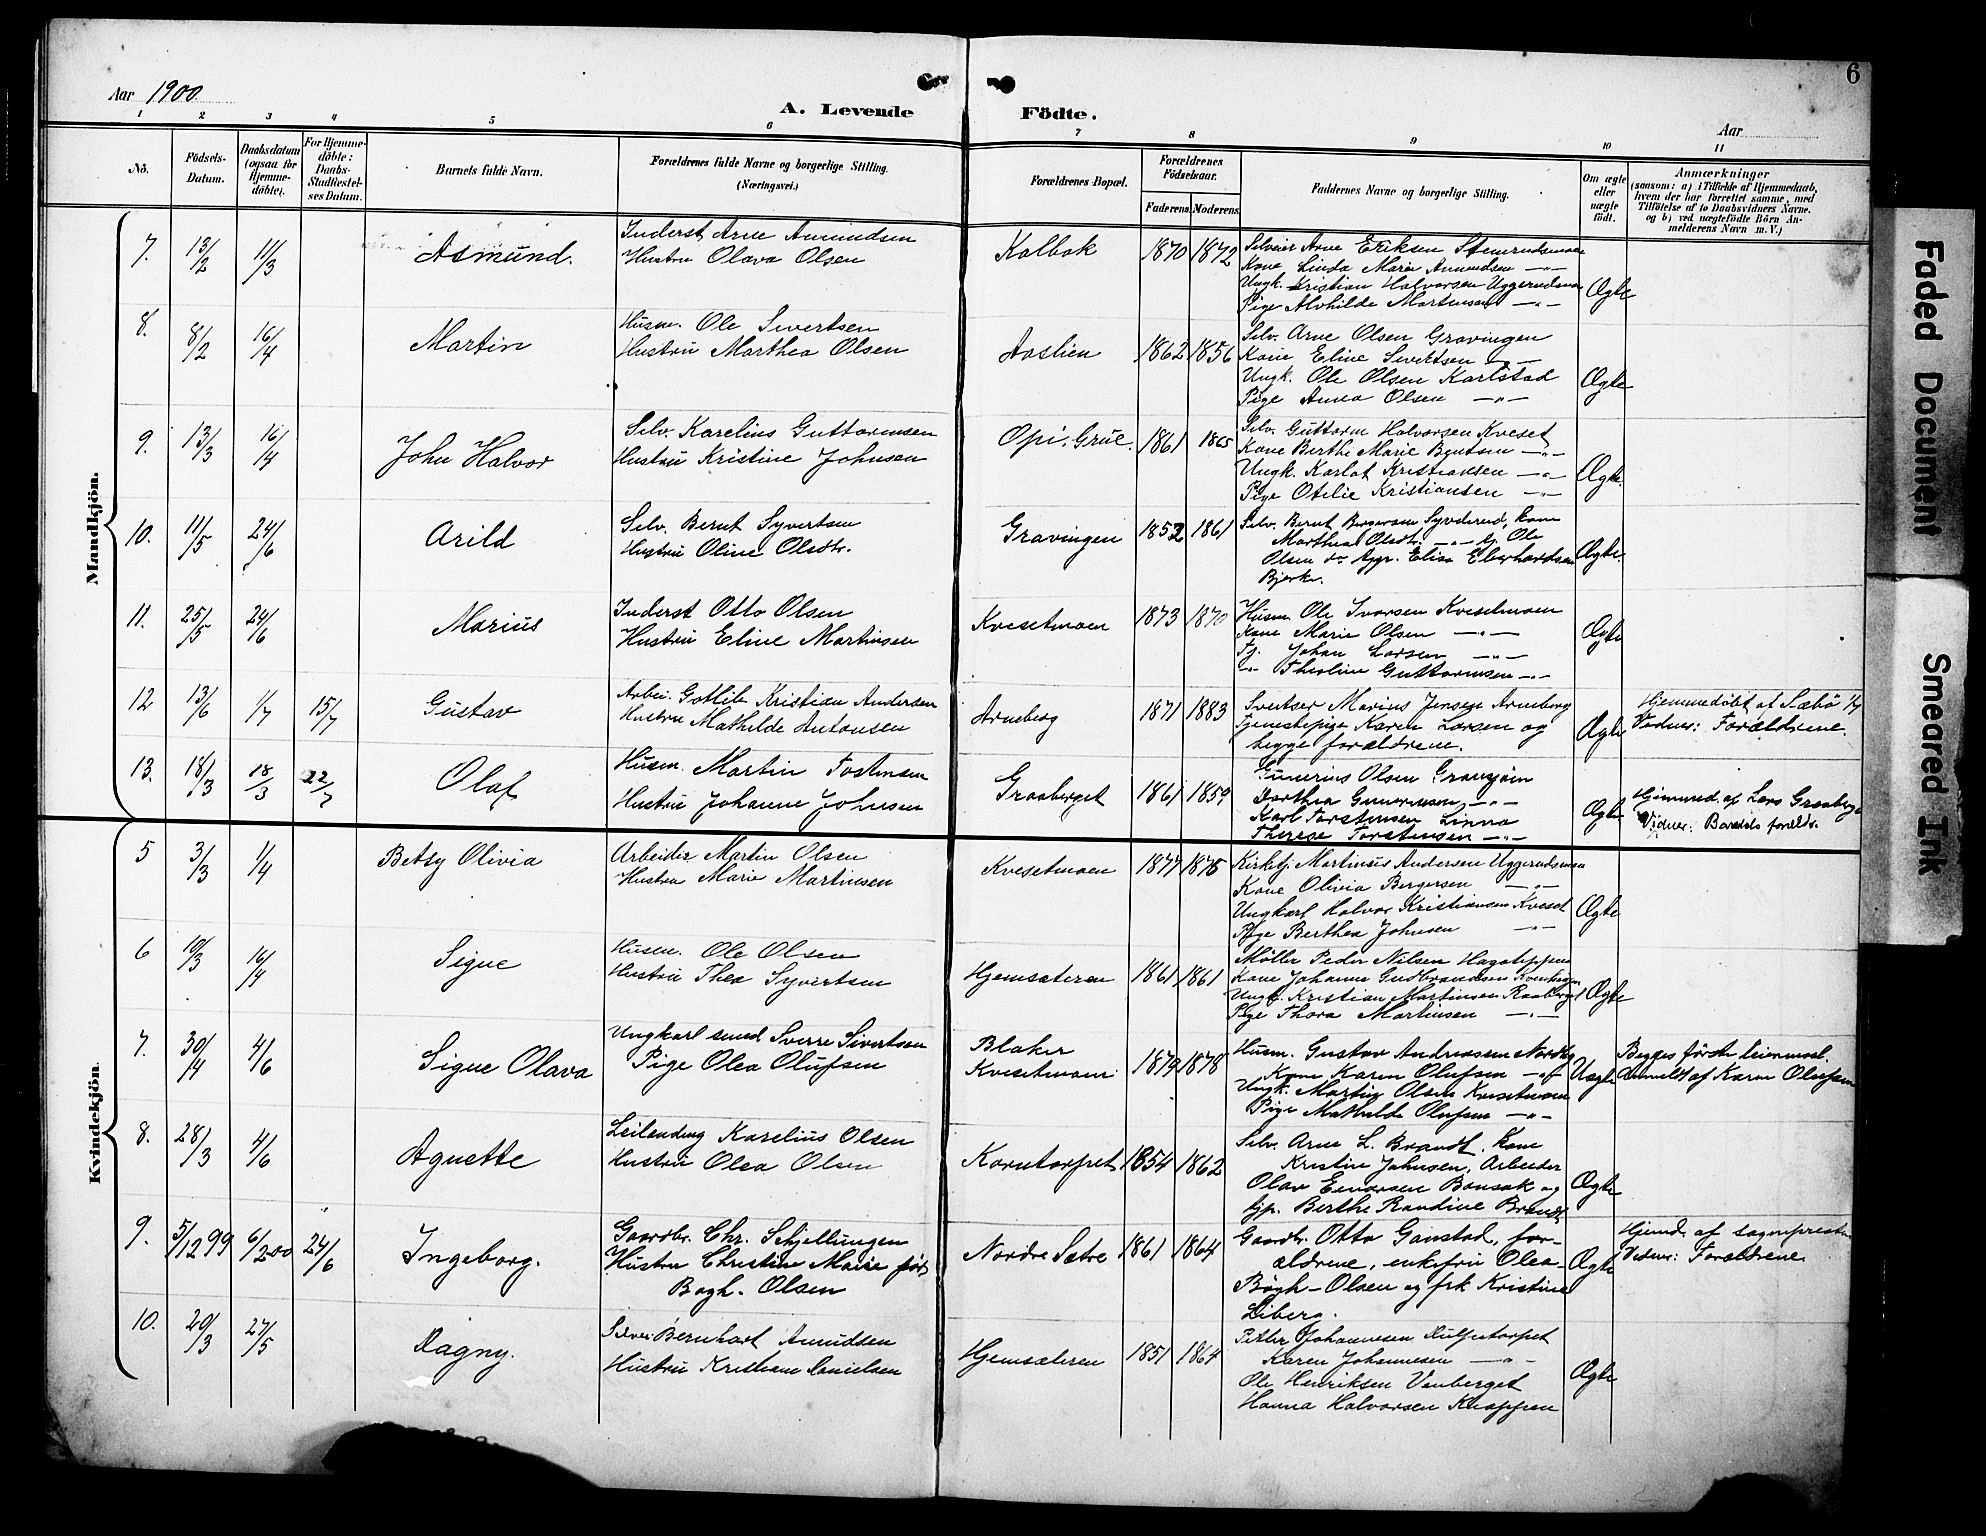 6
Aar 1900
A. Levende Födte.
Aar
1 2 3 4 5 6 7 8 9 10 11
No.
Födsels-Datum.
Daabsdatum (ogsaa for Hjemme-döbte).
For Hjemme-döbte: Daabs-Stadfæstel-ses Datum.
Barnets fulde Navn.
Forældrenes fulde Navne og borgerlige Stilling. (Næringsvei.)
Forældrenes Bopæl.
Forældrenes Födselsaar.
Faderens. Moderens.
Faddernes Navne og borgerlige Stilling.
Om ægte eller uægte födt.
Anmærkninger
(saasom: a) i Tilfælde af Hjemmedaab, hvem der har forrettet samme, med Tilföielse af to Daabsvidners Navne. og b) ved uægtefödte Börn An-melderens Navn m. V.)
Mandkjön.
7. 13/2 11/3 Asmund.
Inderst Arne Amundsen
Hustru Olava Olsen
Kalbak 1870 1872
Selveier Arne Eriksen Stenrudsmoen
Kone Linda Marie Amundsen —"—
Ungk. Kristian Halvorsen Uggerudsmoen
Pige Alvhilde Martinsen —"—
Ægte
8. 8/2 16/4 Martin
Husm. Ole Sivertsen
Hustru Marthea Olsen
Aaslien 1862 1856
Selv. Arne Olsen Gravingen
Kone Eline Sivertsen —"—
Ungk. Ole Olsen Karlstad
Pige Anna Olsen —"—
Ægte
9. 13/3 16/4 John Halvor
Selv. Karelius Guttormsen
Hustru Kristine Johnsen
Opi. Grue. 1861 1865
Selv. Guttorm Halvorsen Kveset
Kone Berthe Marie Bentsen —"—
Ungk. Karlot Kristiansen —"—
Pige Otelie Kristiansen —"—
Ægte.
10. 11/5 24/6 Arild
Selv. Bernt Syvertsen
Hustru Oline Olsdtr.
Gravingen 1852 1861
Selv. Bernt Bergersen Syvderud, kone
Marthea Olsdtr. —"— Ole
Olsen do Elise Eberhardsen
Bjerke.
Ægte.
11. 25/5 24/6 Marius
Inderst Otto Olsen
Hustru Eline Martinsen
Kvesetmoen 1873 1870
Husm. Ole Ivarsen Kvesetmoen
Kone Marie Olsen —"—
Tj. Johan Larsen —"—
—"— Theoline Guttormsen —"—
Ægte
12 13/6 1/7 15/7 Gustav
Arbei. Gotlib Kristian Andersen
Hustru Mathilde Antonsen
Arneberg 1871 1883
Sveitser Marius Jensen Arneberg
Tjenestepige Karen Larsen og
begge forældrene.
Ægte
Hjemmedöbt af Sæbö 1/7
Vidner: Forældrene.
13. 18/3 18/3 22/7 Olaf
Husm. Martin Tostensen
Hustru Johanne Johnsen
Graaberget 1861 1859
Gunerius Olsen
Dorthea Guneriusen —"—
Karl Torstensen Linna
Therese Torstensen —"—
Ægte
Hjemmed. af Lars Graaberge
Vidner: Barnets foreldr.
Kvindekjön.
5 3/3 1/4 Betsy Olivia
Arbeider Martin Olsen
Hustru Marie Martinsen
Kvesetmoen 1877 1875
Kirketj. Martinus Andersen Uggerudsmoen
Kone Olivia Bergersen —"—
Ungkarl Halvor Kristiansen Kveset
Pige Berthea Johnsen —"—
Ægte
6 10/3 16/4 Signe
Husm. Ole Olsen
Hustru Thea Syvertsen
Hjemsæteren 1861 1861
Møller Peder Nilsen
Kone Johanne Gudbrandsen
Ungk. Kristian Martinsen Raaberget
Pige Thora Martinsen —"—
Ægte
7. 30/4 4/6 Signe Olava
Ungkarl smed Sverre Sivertsen
Pige Olea Olufsen
Blaker
Kvesetmoen 1879 1878
Husm. Gustav Andreassen Nordby
Kone Karen Olufsen —"—
Ungk. Martin Olsen Kvesetmoen
Pige Mathilde Olufsen —"—
Uægte
Begges förste leiermaal.
Anmeldt af Karen Olufsen
8. 28/3 4/6 Agnette
Leilending Karelius Olsen
Hustru Olea Olsen
Korntorpet 1854 1862
Selv. Arne L. Brandt, kone
Kristine Johnsen, Arbeider
Olav Einarsen Bansak og
tjp. Berthe Randine Brandt
Ægte
9. 5/12 99 6/2 00 24/6 Ingeborg.
Gaardbr. Chr. Schjellungen
Hustru Christine Marie född
Bøgh-Olsen
Nordre Sætre 1861 1864
Gaardbr. Otto Ganstad, for-
ældrene, enkefru Olea
Bögh-Olsen og frk Kristine
Liberg.
Ægte
Hjemd. af sognepresten
Vidner: Forældrene
10. 20/3 27/5 Ragny.
Selvei Bernhart Amundsen
Hustru Kristiane Danielsen
Hjemsæteren 1851 1864
Petter Johannesen
Karen Johannesen —"—
Ole Henriksen Vamberget
Hanna Halvorsen Knappen
Ægte
Faded Document
Smeared Ink